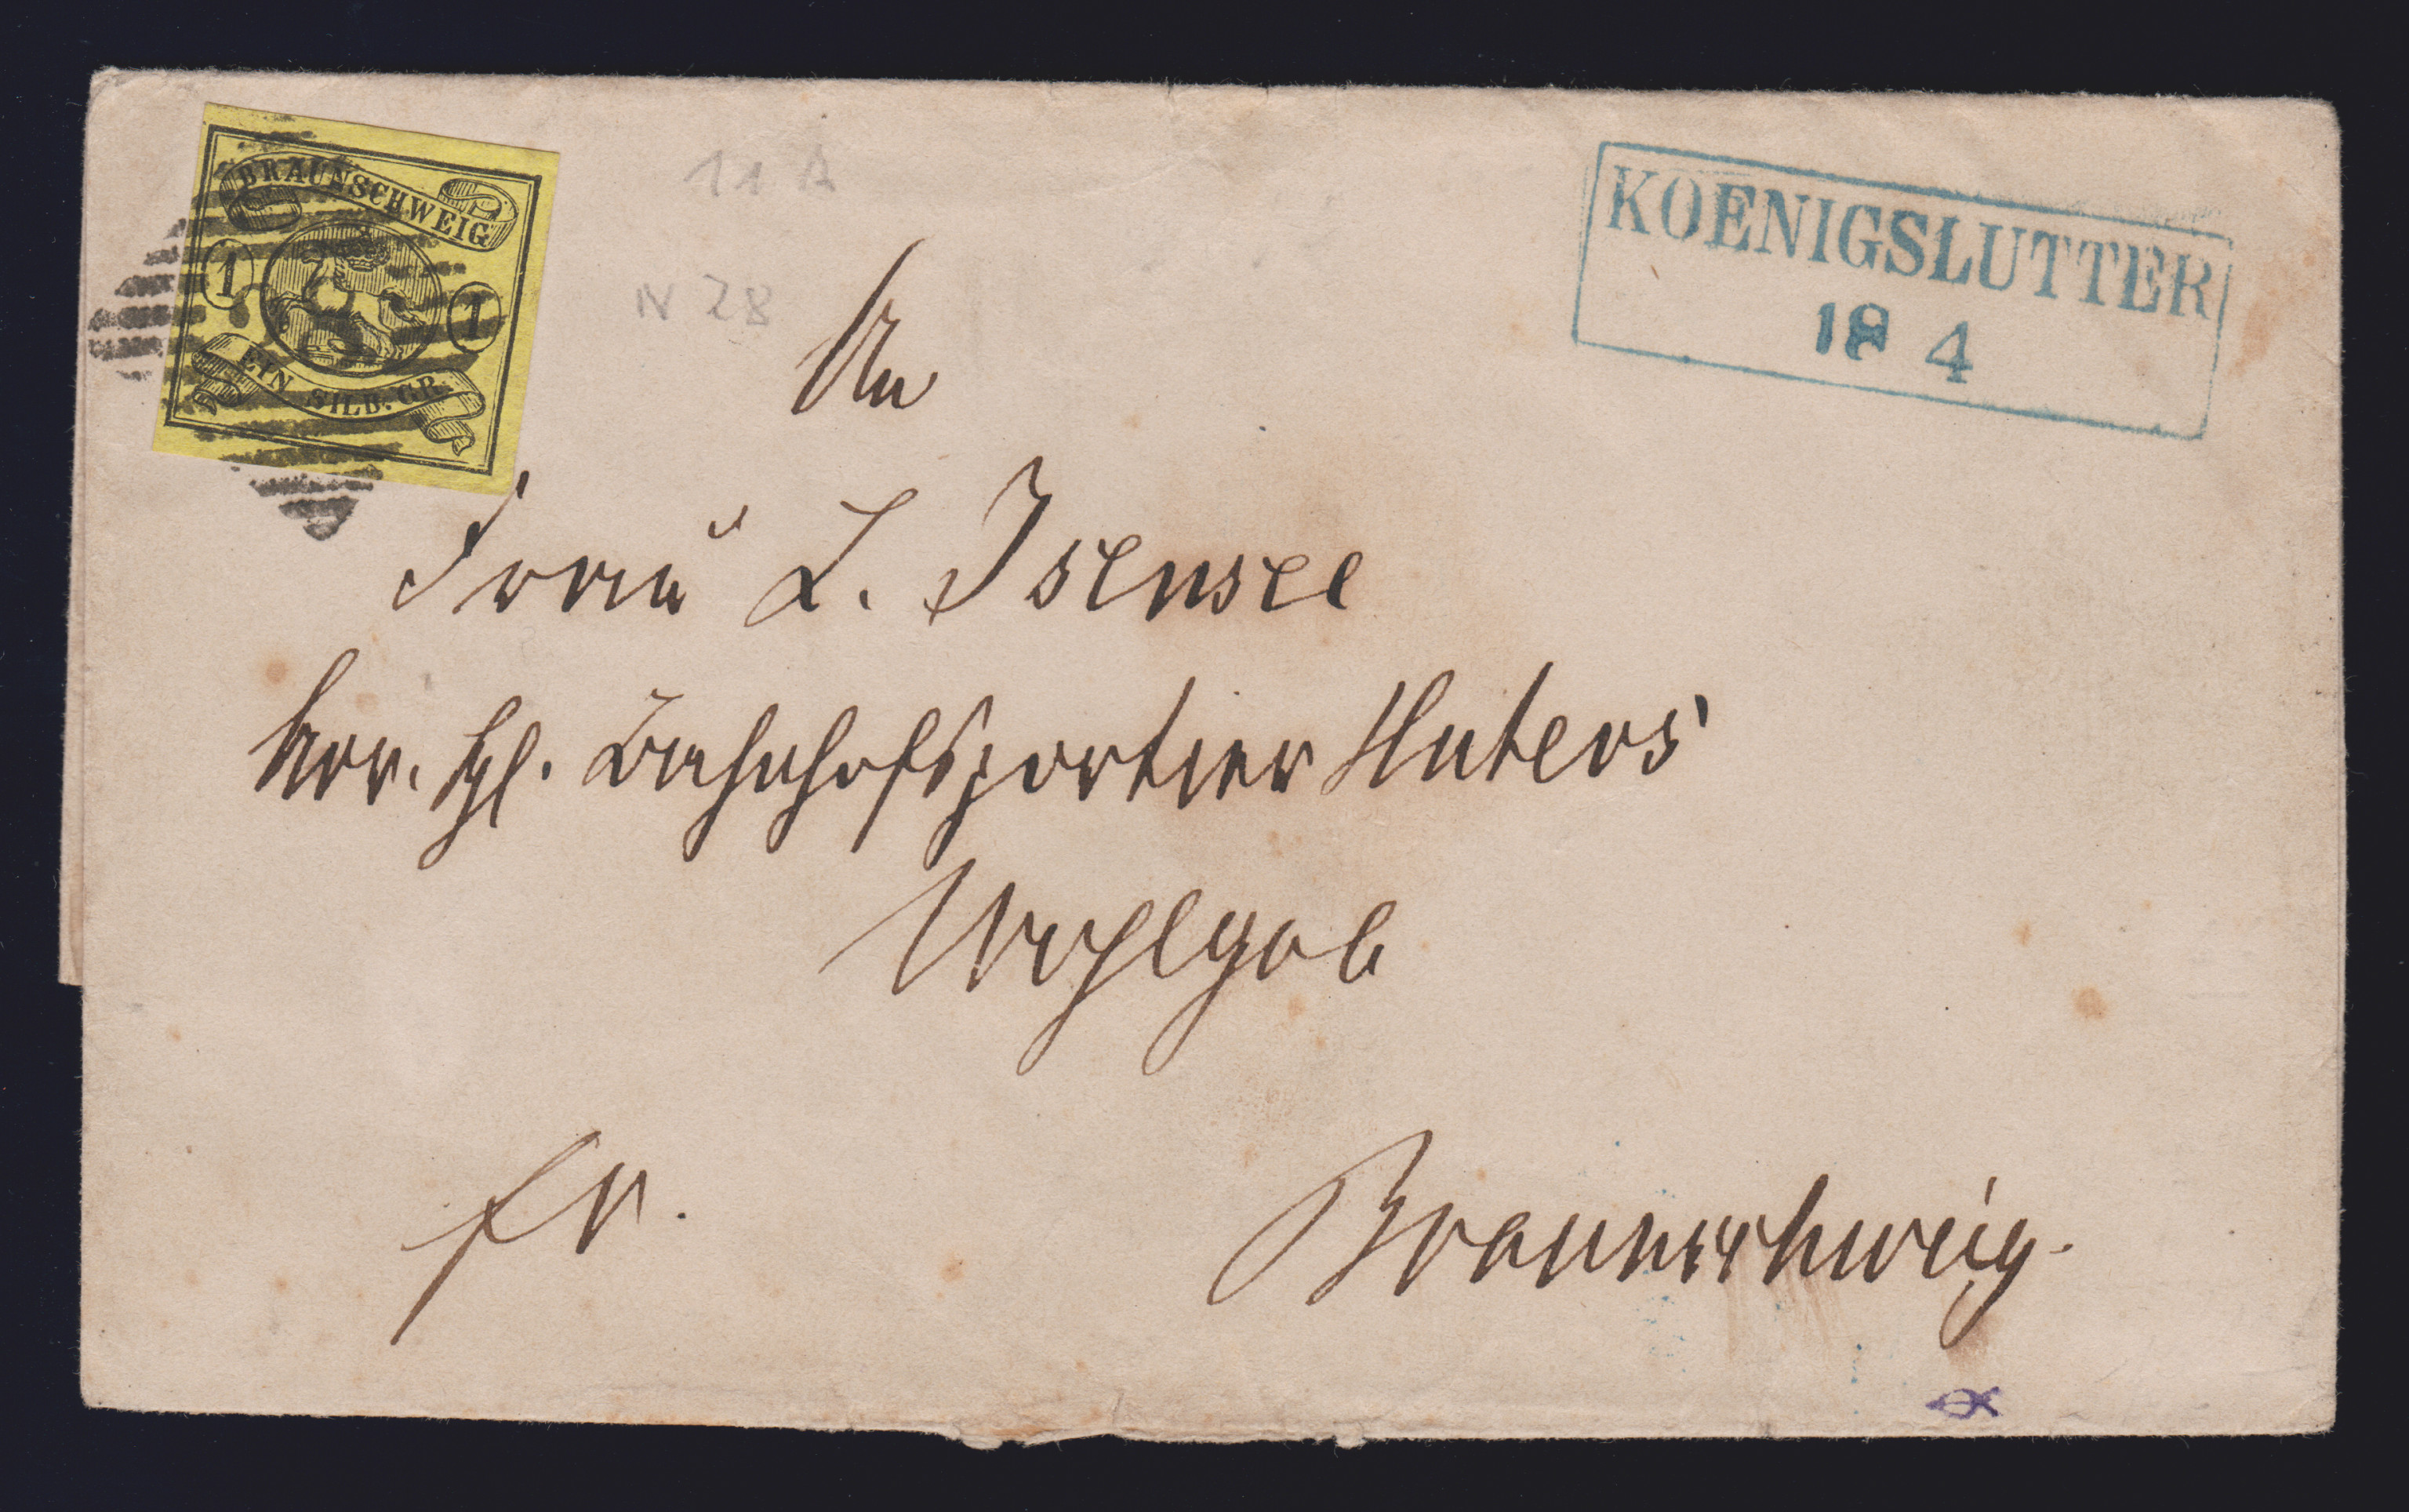 BRAUNSCHWEIG
1 1
EIN SILB. GR.
11 A
N 28
KOENIGSLUTTER
18 4
An
Frau L. Isensee
Bahnhofsportier Huters
Wohlgeb
fr.
Braunschweig.